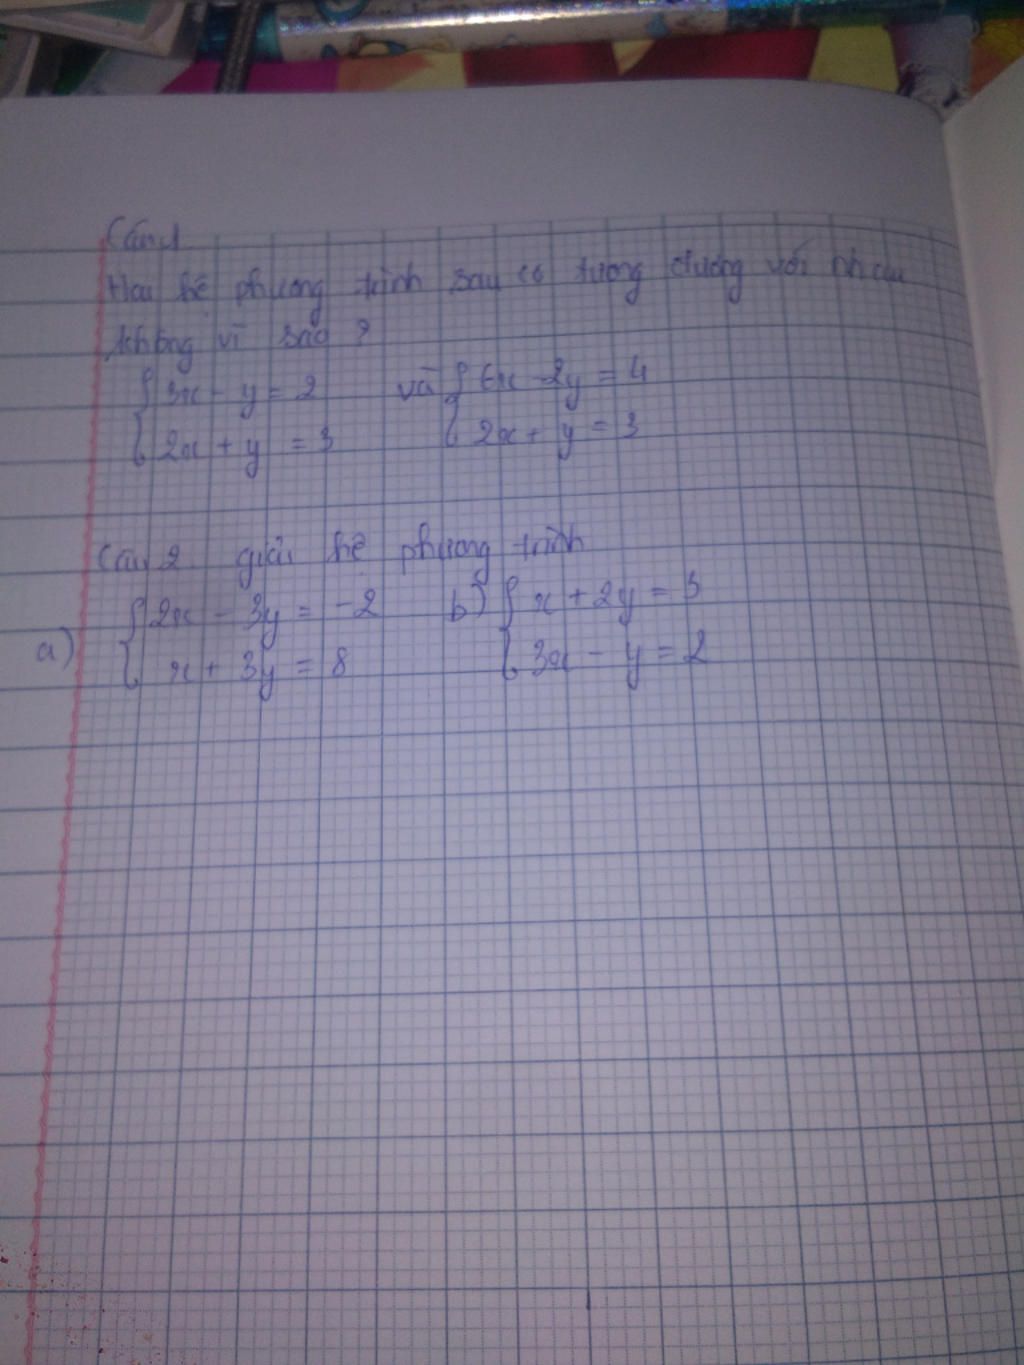 Câu 1
Hai hệ phương trình sau có tương đương với nhau
không vì sao ?
{ 3x - y = 2 và { 6x - 2y = 4
{ 2x + y = 3 { 2x + y = 3
Câu 2 giải hệ phương trình
a) { 2x - 3y = -2 b) { x + 2y = 3
{ x + 3y = 8 { 3x - y = 2